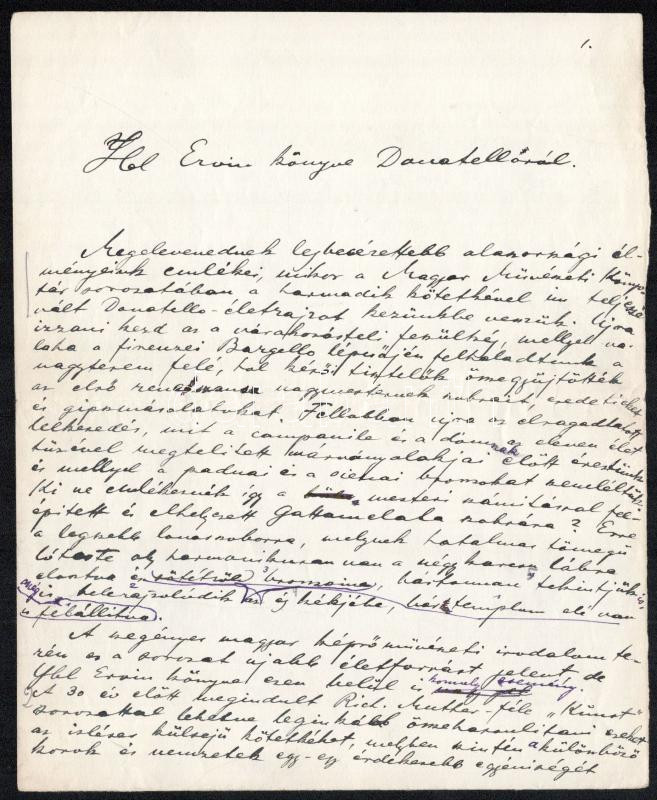 1.
Ybl Ervin könyve Donatelloról.
Megelevenednek legbecézettebb olaszországi él-
ményeink emlékei, mikor a Magyar Művészeti Könyv-
tár sorozatában a harmadik kötetkével im teljessé
vált Donatello-életrajzot kezünkbe vesszük. Ujra
izzani kezd az a várakozásteli feszültség, mellyel va-
laha a firenzei Bargello lépcsőjén felhaladtunk a
nagyterem felé, hol késői tisztelők összegyüjtötték
az első renaissance nagymesternek szobrait, eredetiket
és gipszmásolatokat. Fellobban ujra az elragadtatott
lelkesedés, mit a campanile és a dómnak az eleven élet
tüzével megtelitett márványalakjai előtt éreztünk
és mellyel a paduai és a sienai bronzokat szemléltük.
Ki ne emlékeznék igy a mesteri számitással fel-
épitett és elhelyezett Gattamelata szobrára? Erre
a legszebb lovasszoborra, melynek hatalmas tömegű
lóteste oly harmonikusan van a négy karcsu lábra
elosztva és sötétzöld bronzszine, bátorman tekintjük is
még is belerajzolódik az ég kékjébe, templom elé van
is felállitva.
A szegényes magyar képzőművészeti irodalom te-
rén ez a sorozat ujabb életforrást jelent, de
Ybl Ervin könyve ezen belül is komoly esemény.
A 30 év előtt megindult Rich. Muther-féle „Kunst"
sorozattal lehetne leginkább összehasonlitani ezeket
az izléses külsejű kötetkéket, melyben szintén a különböző
korok és nemzetek egy-egy érdekesebb egyéniségét